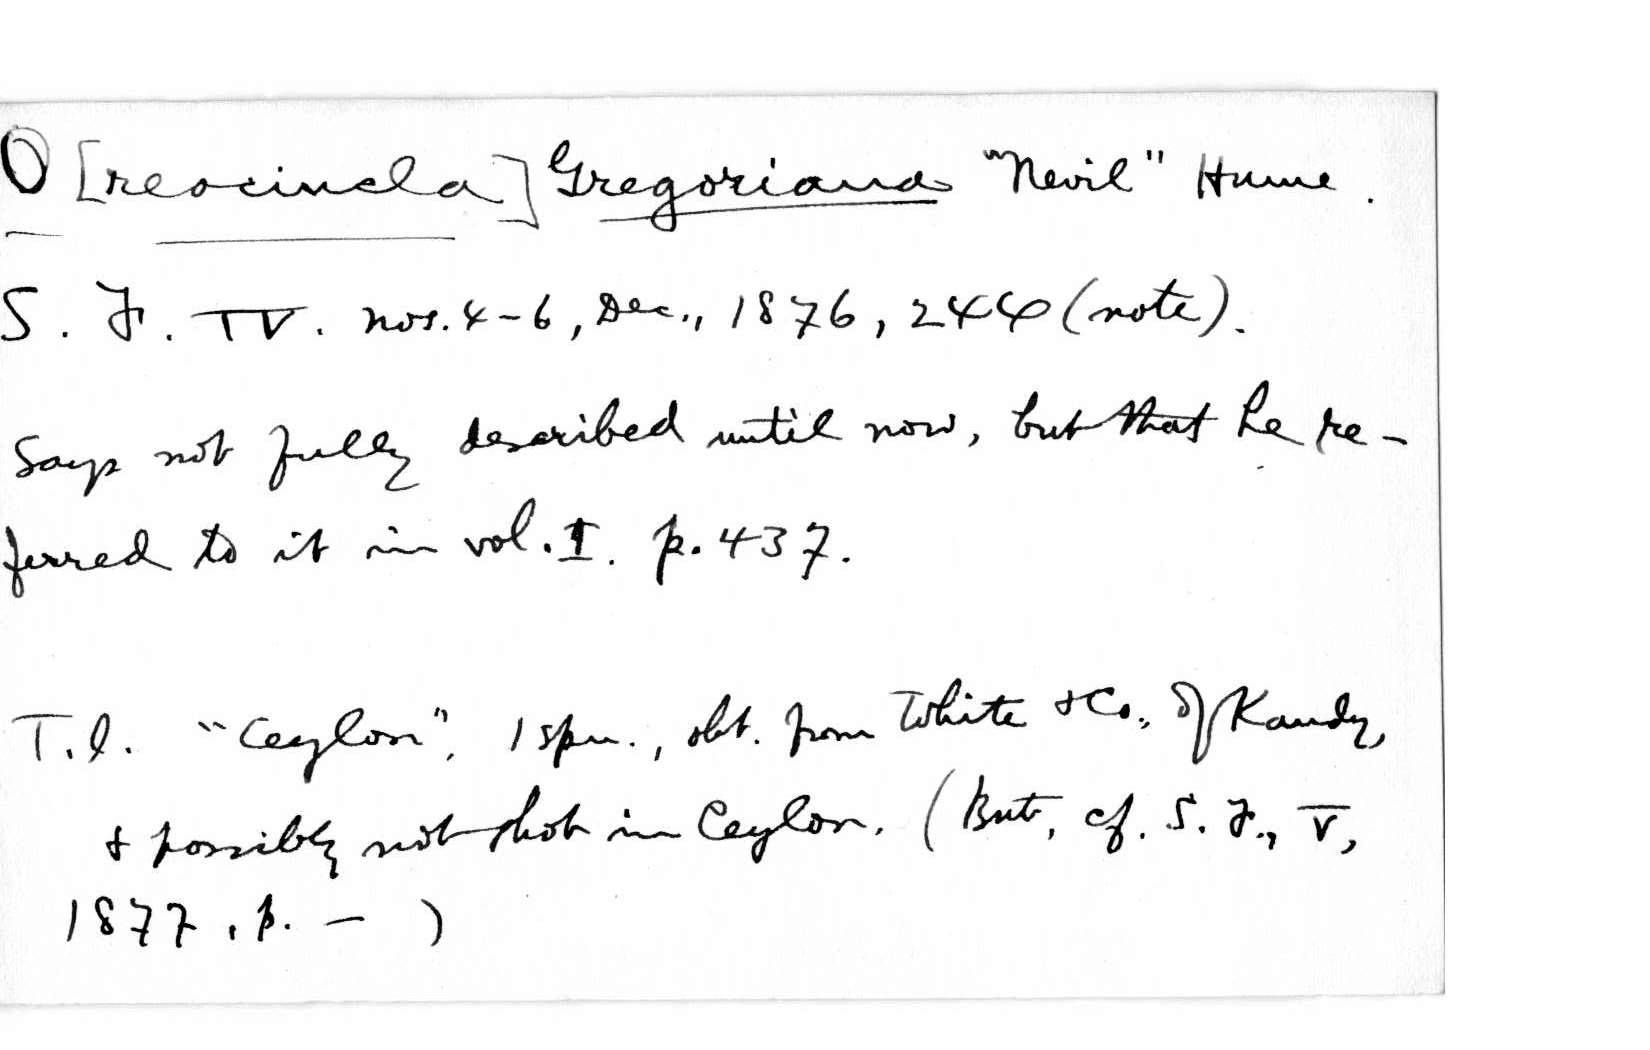 O [reocincla] Gregoriana "Nevil" Hume.
S. F. IV. nos. 4-6, Dec., 1876, 244 (note).
Says not fully described until now, but that he re-
ferred to it in vol. I. p. 437.
T.l. "Ceylon", 1 spm., obt. from White & Co., of Kandy,
& possibly not shot in Ceylon. (But, cf. S. F., V,
1877, p. — )